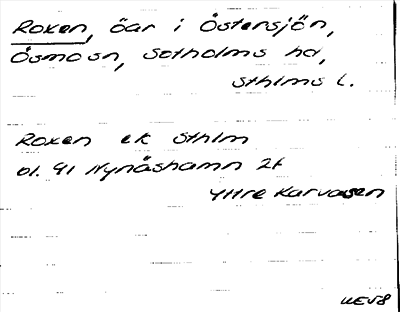 Roxen, öar i Östersjön,
Ösmo sn, Sotholms hd,
Sthlms l.
Roxen ek Sthlm
bl. 91 Nynäshamn 2f
Yttre Karvasen
UEV8